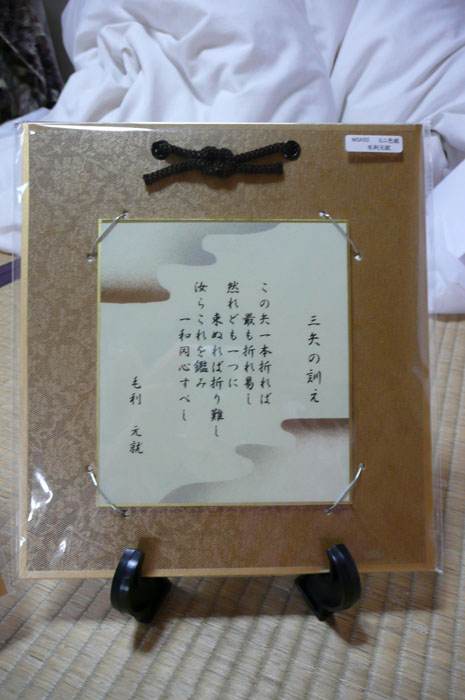 MSK03 ミニ色紙
毛利元就
三矢の訓え
この矢一本折れば
最も折れ易し
然れども一つに
束ぬれば折り難し
汝らこれを鑑み
一和同心すべし
毛利 元就